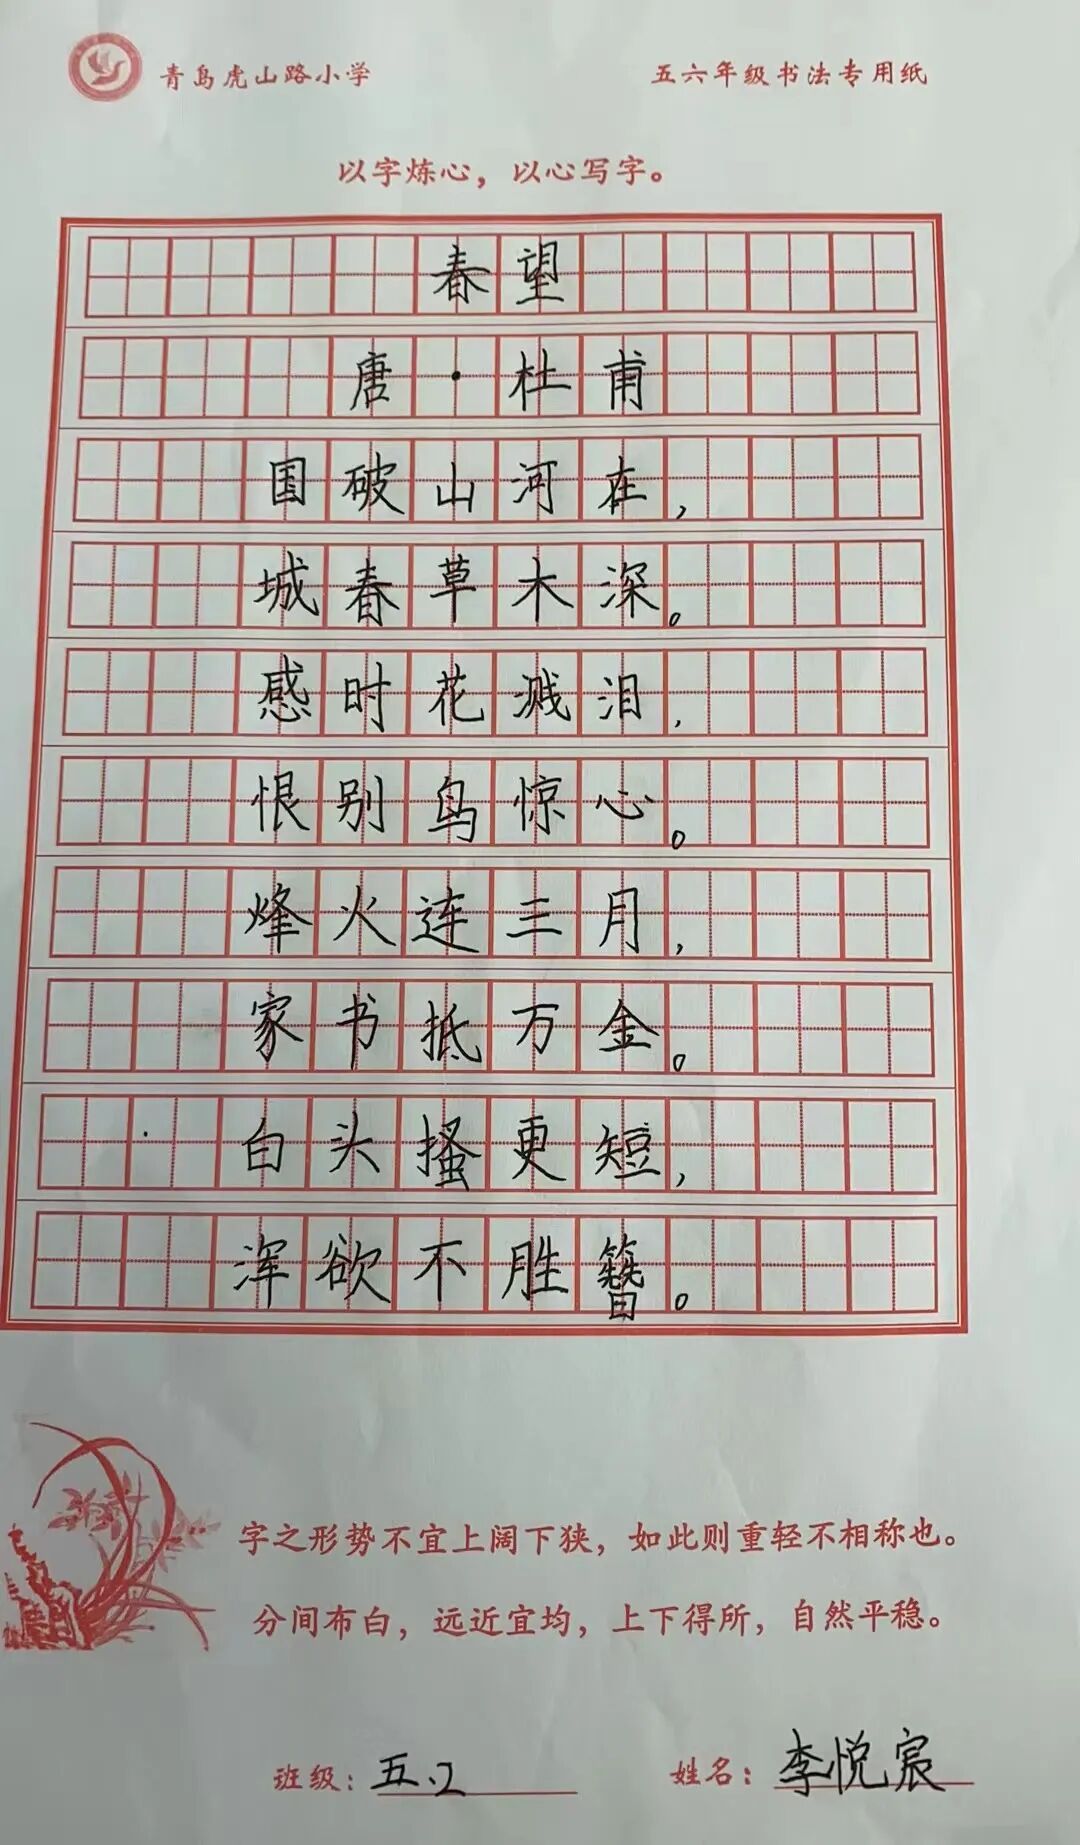 青岛虎山路小学 五六年级书法专用纸
以字炼心，以心写字。
春望
唐·杜甫
国破山河在，
城春草木深。
感时花溅泪，
恨别鸟惊心。
烽火连三月，
家书抵万金。
白头搔更短，
浑欲不胜簪。
字之形势不宜上阔下狭，如此则重轻不相称也。
分间布白，远近宜均，上下得所，自然平稳。
班级：五.2 姓名：李悦宸